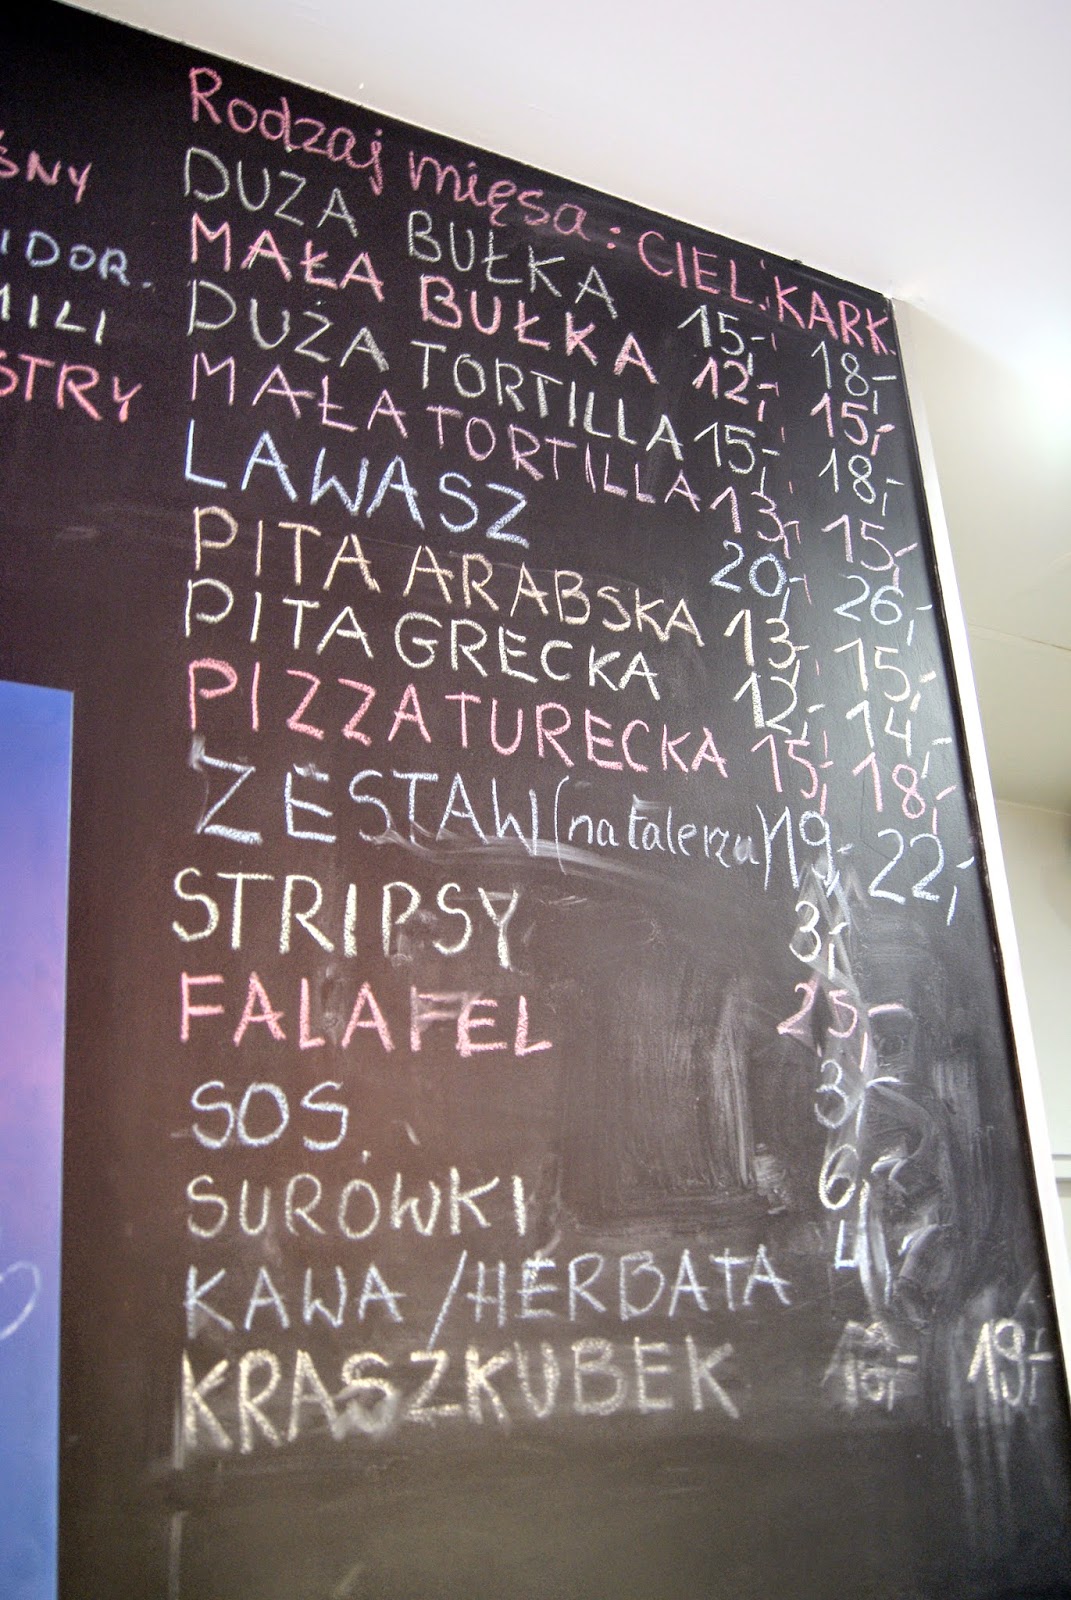 ŚNY
IDOR.
MILI
STRY
Rodzaj mięsa: CIEL. KARK.
DUŻA BUŁKA 15,- 18,-
MAŁA BUŁKA 12,- 15,-
DUŻA TORTILLA 15,- 18,-
MAŁA TORTILLA 13,- 15,-
LAWASZ 20,- 26,-
PITA ARABSKA 13,- 15,-
PITA GRECKA 12,- 14,-
PIZZA TURECKA 15,- 18,-
ZESTAW (na talerzu) 19,- 22,-
STRIPSY 3,-
FALAFEL 25,-
SOS 3,-
SURÓWKI 6,-
KAWA/HERBATA 4,-
KRASZKUBEK 16,- 19,-